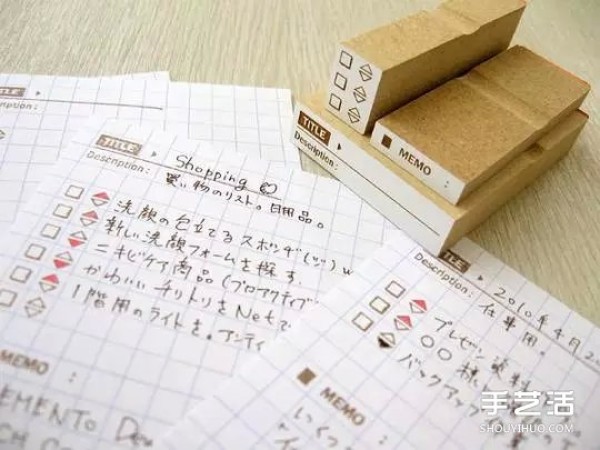 TITLE
Description:
MEMO :
TITLE
Description:
TITLE
Description:
Shopping
買い物のリスト。日用品。
洗顔の包立てるスポンヂ(ツ)
新しい洗顔フォームを探す.
ニキビケア商品(プロアクティブ
かわいいチリトリをNetで
1階用のライトを。アンティ
MEMO :
EMENTO
TITLE
Description:
2010年4月2
仕事用。
プレゼン資料
〇〇様
バックアップ
MEMO
手艺活
SHOUYIHUO.COM